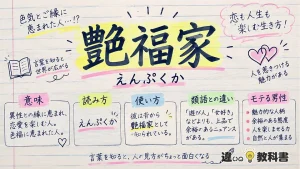 色気とご縁に
恵まれた人…!?
艶福家
えんぷくか
恋も人生も
楽しむ生き方!
言葉を知ると
世界が広がる
人を惹きつける
魅力がある
意味
異性との縁に恵まれ、
恋愛を楽しむ人。
色福に恵まれた人。
読み方
えんぷくか
使い方
彼は昔から
艶福家として
知られている。
類語との違い
「遊び人」「女好き」
などよりも、上品で
幸福なニュアンスが
ある。
モテる男性
魅力的な人柄
余裕のある態度
人を楽しませる力
自然と人が集まる
言葉を知ると、人の見方がちょっと面白くなる
教科書